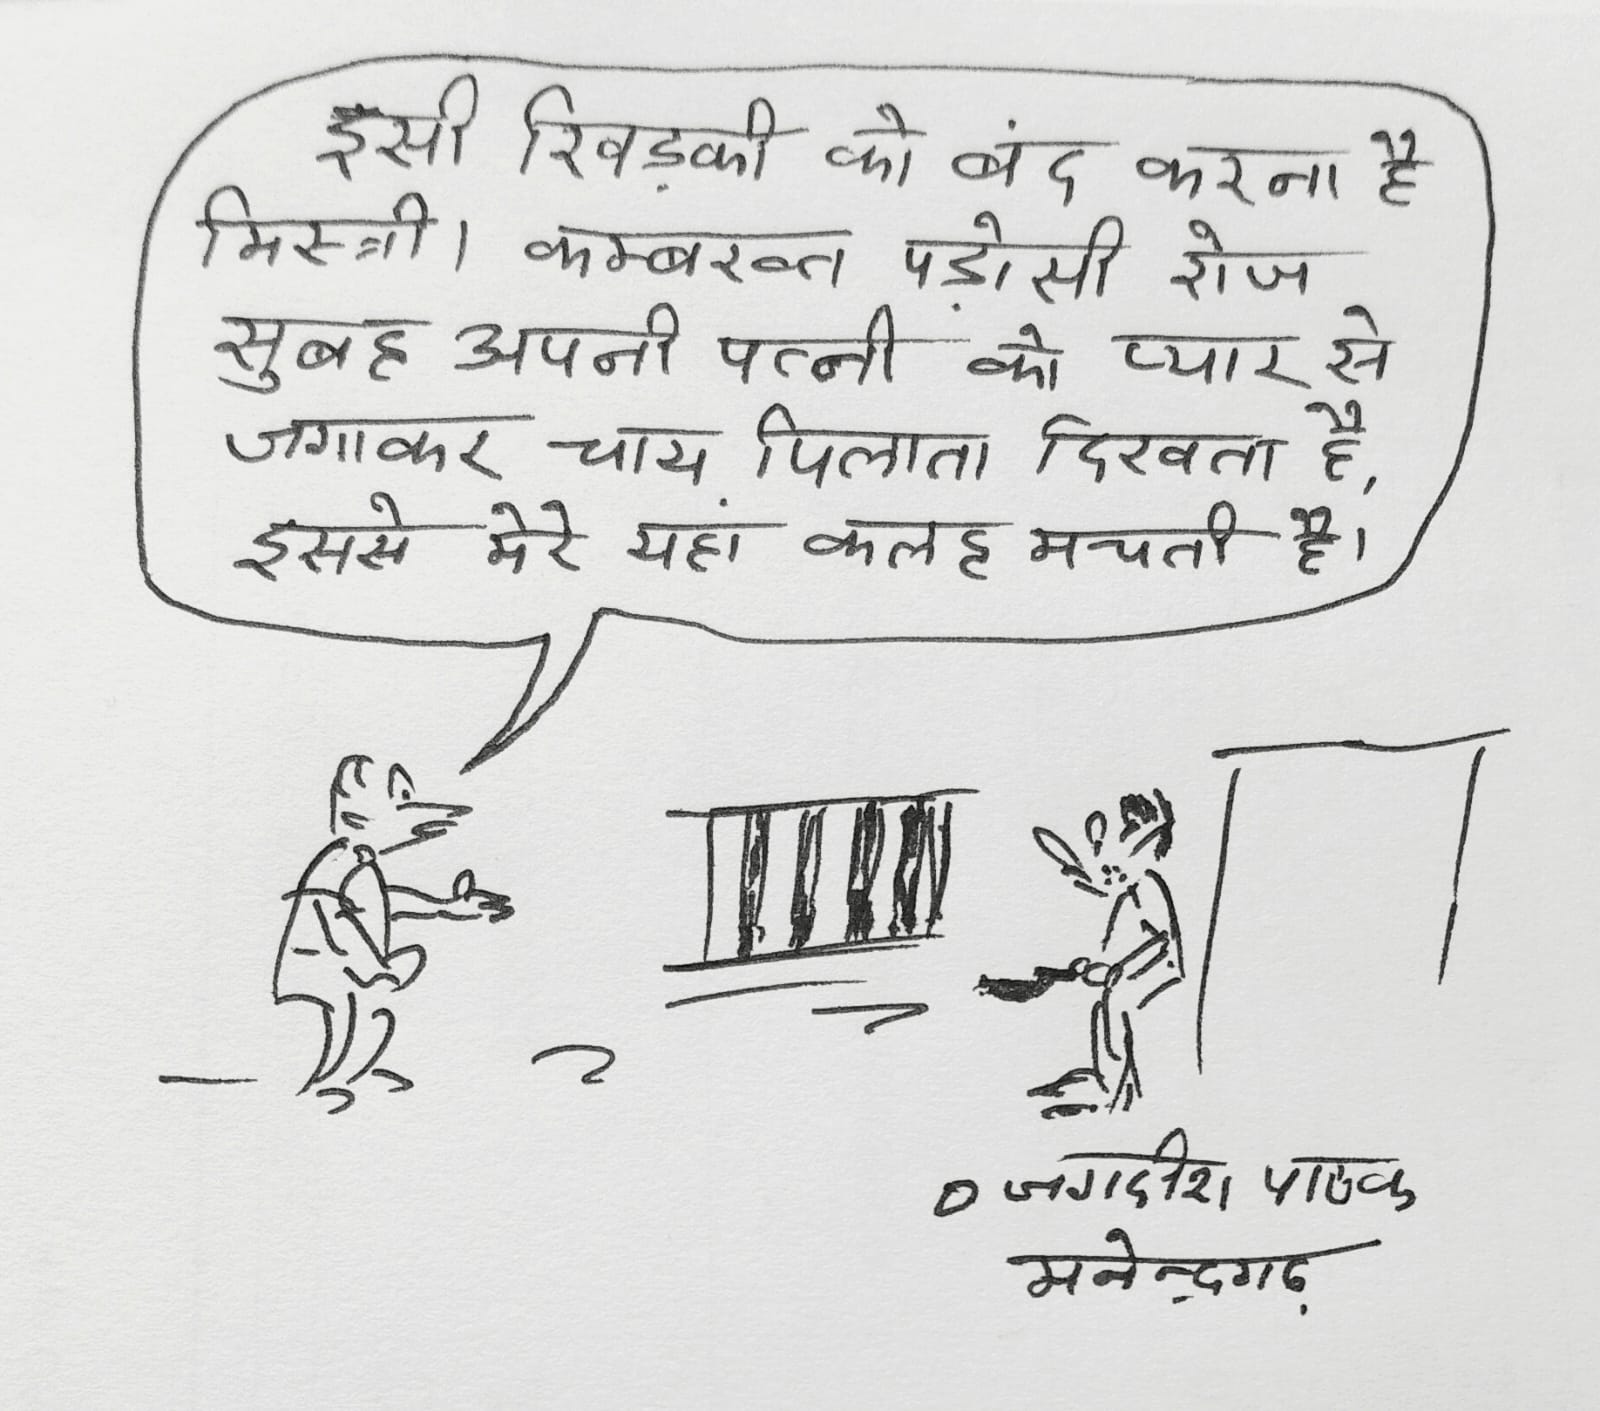 इसी खिड़की को बंद करना है
मिस्त्री। कम्बख्त पड़ोसी रोज
सुबह अपनी पत्नी को प्यार से
जगाकर चाय पिलाता दिखता है,
इससे मेरे यहां कलह मचती है।
जगदीश पाठक
मनेन्द्रगढ़